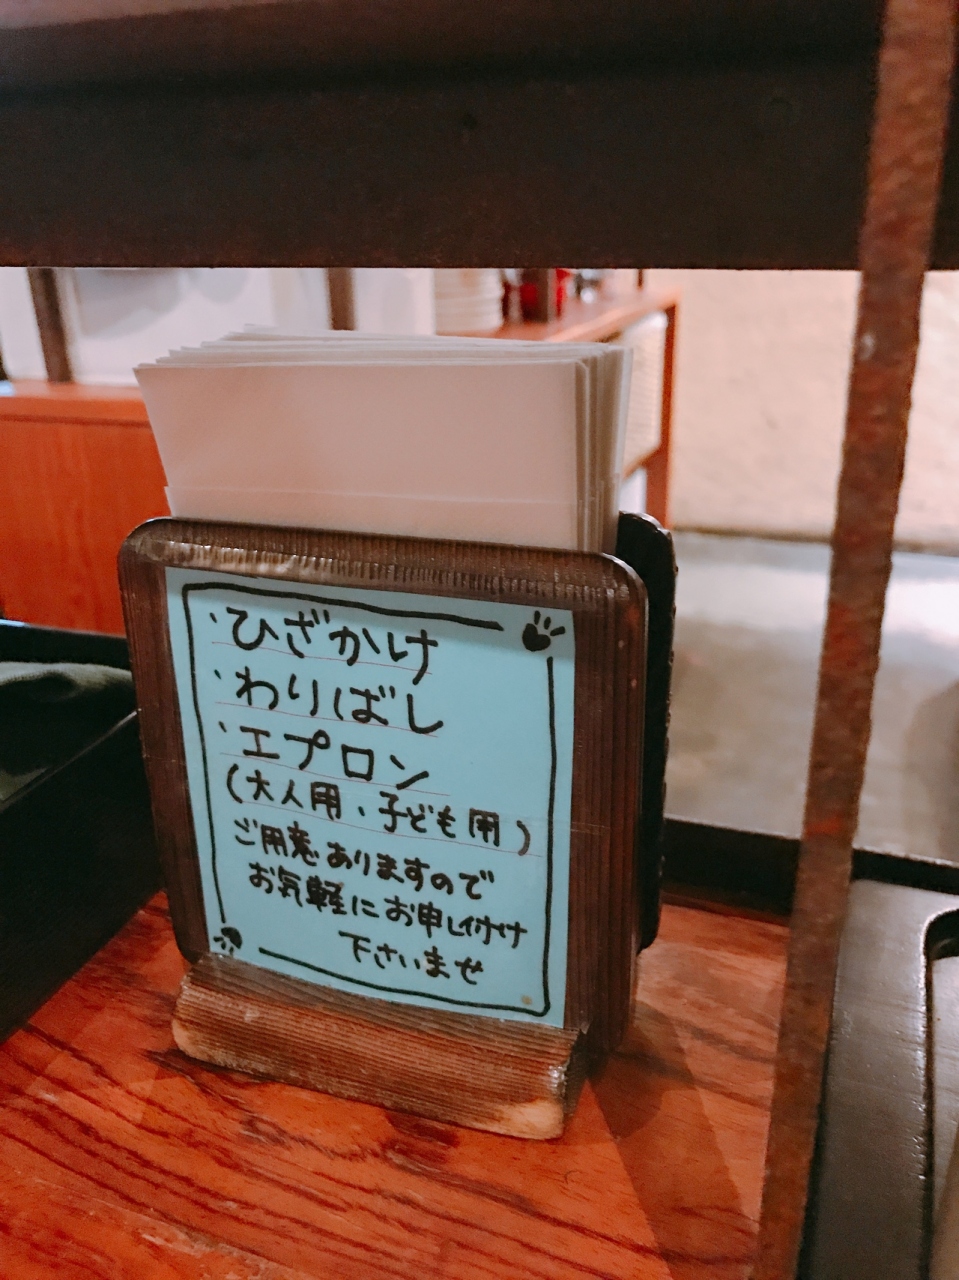 ・ひざかけ
・わりばし
・エプロン
(大人用、子ども用)
ご用意ありますので
お気軽にお申し付け
下さいませ